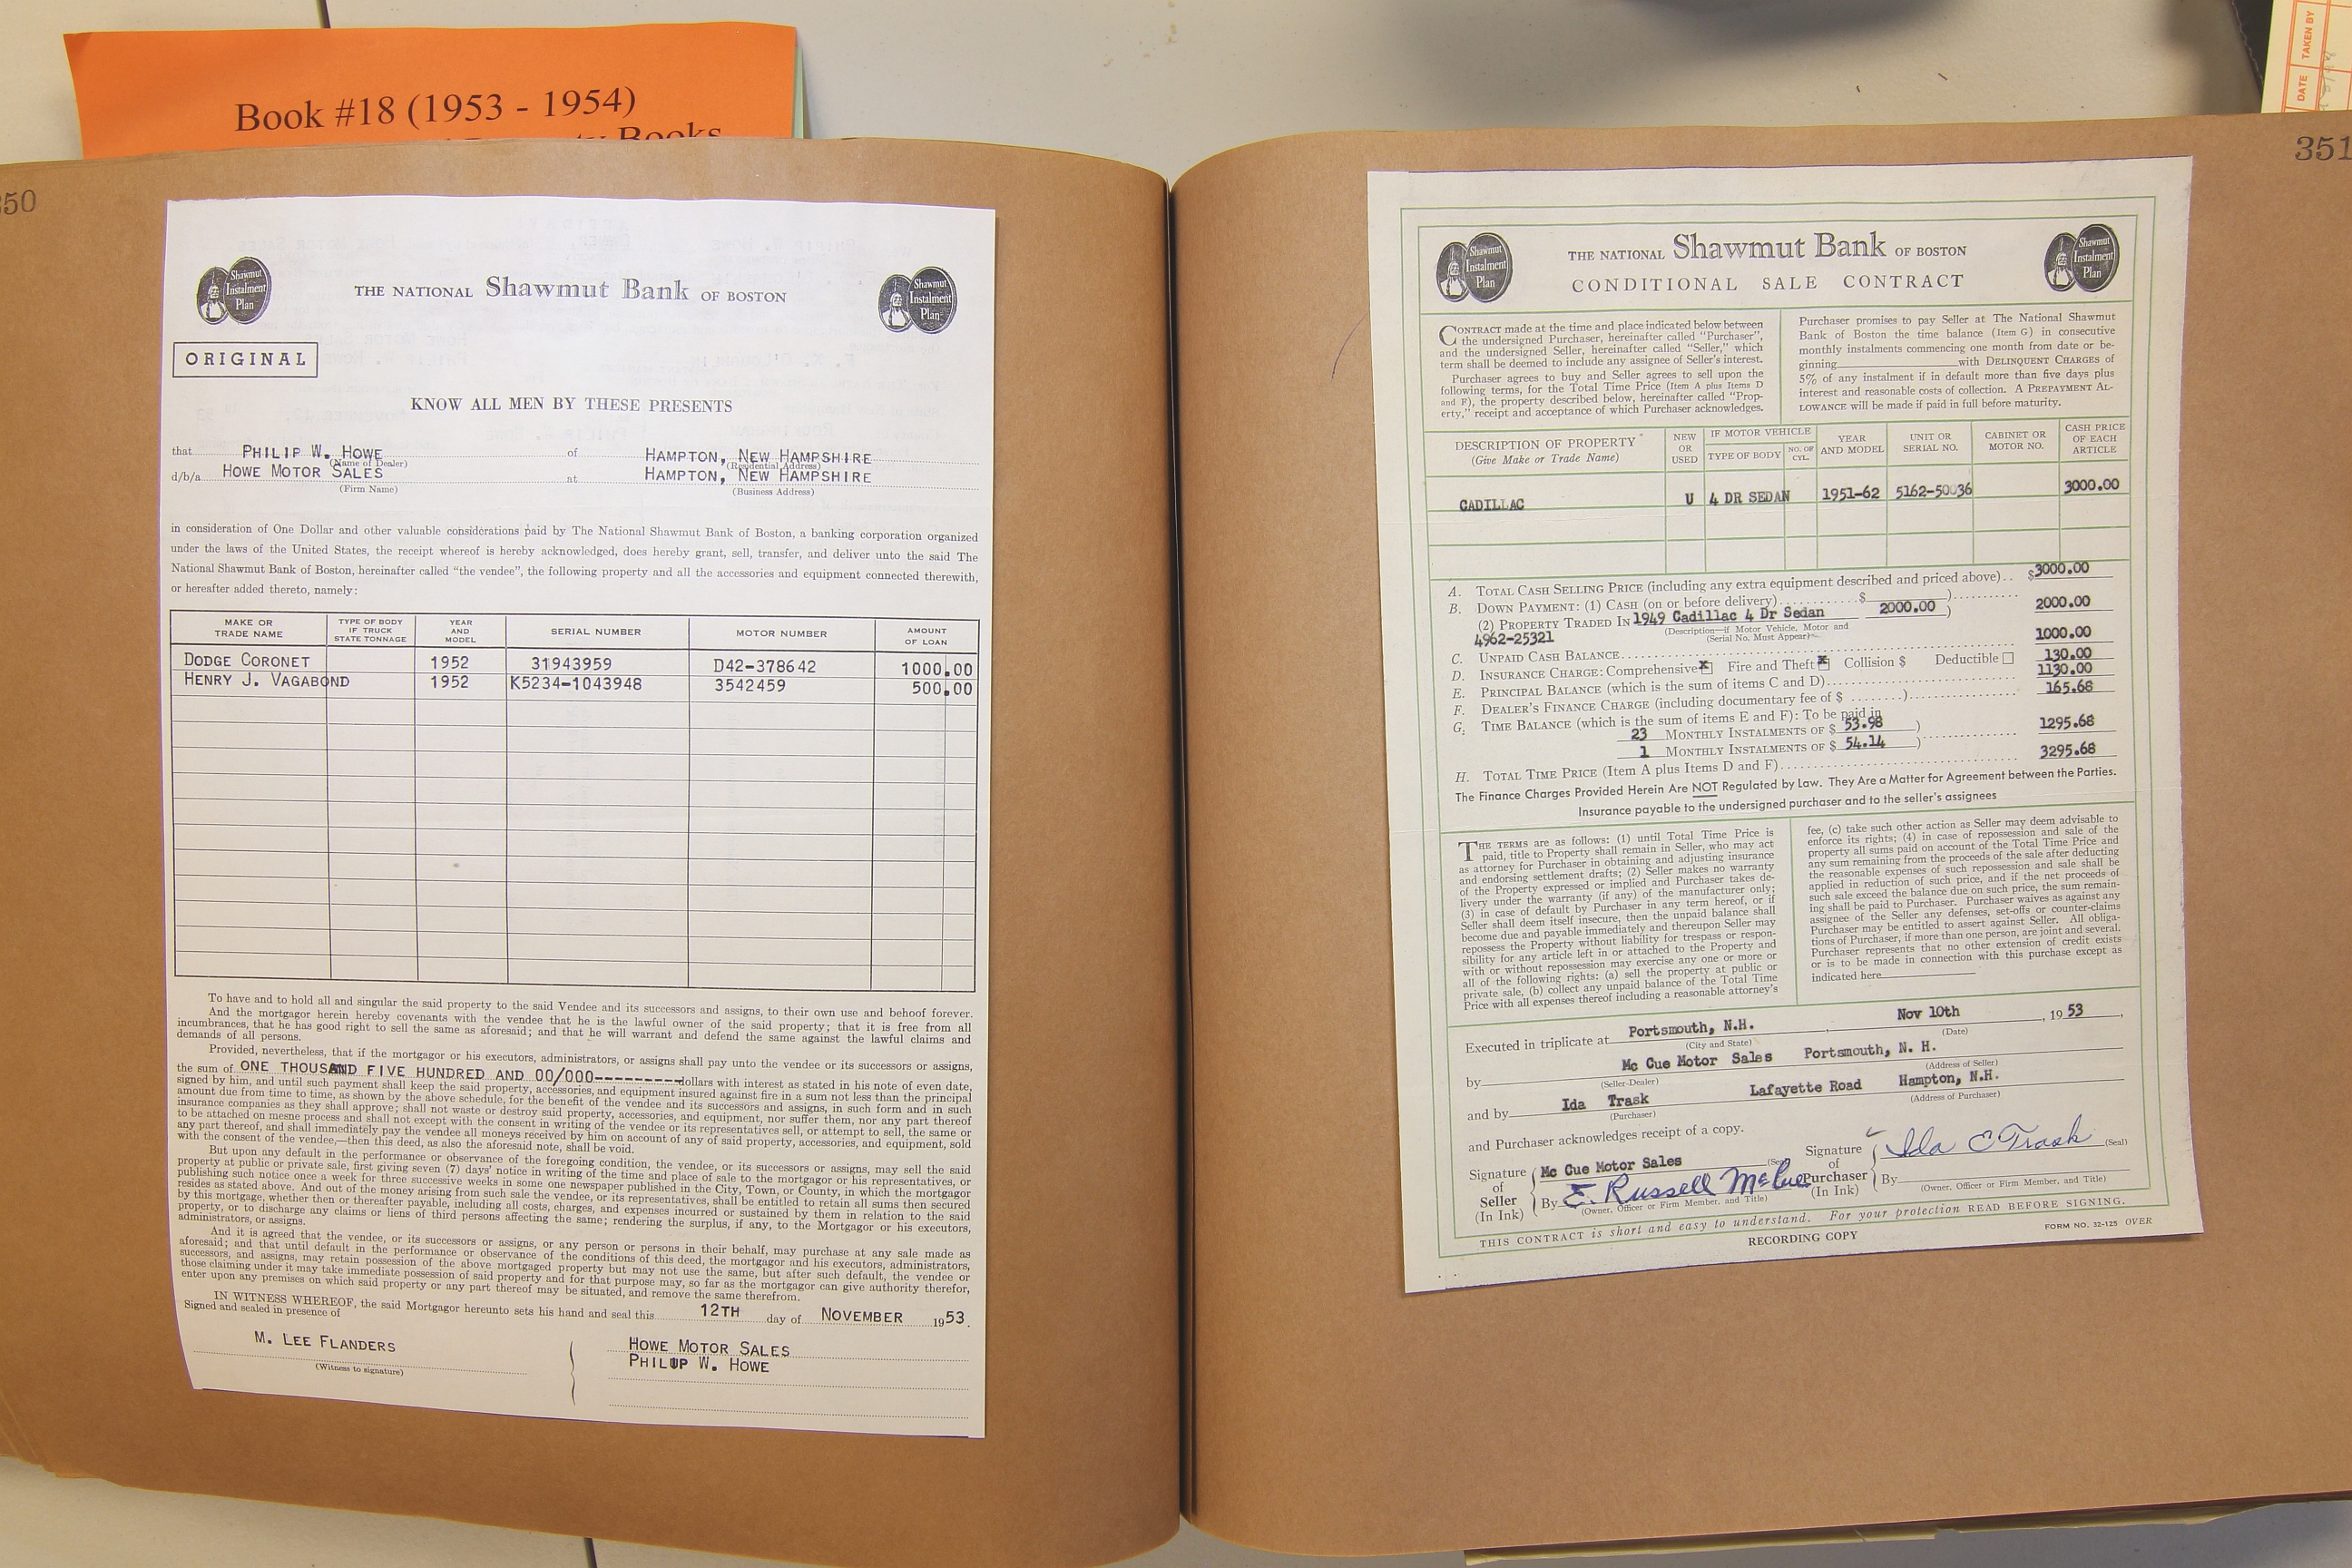 Book #18 (1953 - 1954)
Books
DATE TAKEN BY
50
351
Shawmut
Instalment
Plan
THE NATIONAL Shawmut Bank OF BOSTON
Shawmut
Instalment
Plan
ORIGINAL
KNOW ALL MEN BY THESE PRESENTS
that PHILIP W. HOWE of HAMPTON, NEW HAMPSHIRE
(Name of Dealer) (Residential Address)
d/b/a HOWE MOTOR SALES at HAMPTON, NEW HAMPSHIRE
(Firm Name) (Business Address)
in consideration of One Dollar and other valuable considerations paid by The National Shawmut Bank of Boston, a banking corporation organized
under the laws of the United States, the receipt whereof is hereby acknowledged, does hereby grant, sell, transfer, and deliver unto the said The
National Shawmut Bank of Boston, hereinafter called “the vendee”, the following property and all the accessories and equipment connected therewith,
or hereafter added thereto, namely:
MAKE OR TRADE NAME TYPE OF BODY IF TRUCK STATE TONNAGE YEAR AND MODEL SERIAL NUMBER MOTOR NUMBER AMOUNT OF LOAN
DODGE CORONET 1952 31943959 D42-378642 1000.00
HENRY J. VAGABOND 1952 K5234-1043948 3542459 500.00
To have and to hold all and singular the said property to the said Vendee and its successors and assigns, to their own use and behoof forever.
And the mortgagor herein hereby covenants with the vendee that he is the lawful owner of the said property; that it is free from all
incumbrances, that he has good right to sell the same as aforesaid; and that he will warrant and defend the same against the lawful claims and
demands of all persons.
Provided, nevertheless, that if the mortgagor or his executors, administrators, or assigns shall pay unto the vendee or its successors or assigns,
the sum of ONE THOUSAND FIVE HUNDRED AND 00/000---------- dollars with interest as stated in his note of even date,
signed by him, and until such payment shall keep the said property, accessories, and equipment insured against fire in a sum not less than the principal
amount due from time to time, as shown by the above schedule, for the benefit of the vendee and its successors and assigns, in such form and in such
insurance companies as they shall approve; shall not waste or destroy said property, accessories, and equipment, nor suffer them, nor any part thereof
to be attached on mesne process and shall not except with the consent in writing of the vendee or its representatives sell, or attempt to sell, the same or
any part thereof, and shall immediately pay the vendee all moneys received by him on account of any of said property, accessories, and equipment, sold
with the consent of the vendee,—then this deed, as also the aforesaid note, shall be void.
But upon any default in the performance or observance of the foregoing condition, the vendee, or its successors or assigns, may sell the said
property at public or private sale, first giving seven (7) days' notice in writing of the time and place of sale to the mortgagor or his representatives, or
publishing such notice once a week for three successive weeks in some one newspaper published in the City, Town, or County, in which the mortgagor
resides as stated above. And out of the money arising from such sale the vendee, or its representatives, shall be entitled to retain all sums then secured
by this mortgage, whether then or thereafter payable, including all costs, charges, and expenses incurred or sustained by them in relation to the said
property, or to discharge any claims or liens of third persons affecting the same; rendering the surplus, if any, to the Mortgagor or his executors,
administrators, or assigns.
And it is agreed that the vendee, or its successors or assigns, or any person or persons in their behalf, may purchase at any sale made as
aforesaid; and that until default in the performance or observance of the conditions of this deed, the mortgagor and his executors, administrators,
successors, and assigns, may retain possession of the above mortgaged property but may not use the same, but after such default, the vendee or
those claiming under it may take immediate possession of said property and for that purpose may, so far as the mortgagor can give authority therefor,
enter upon any premises on which said property or any part thereof may be situated, and remove the same therefrom.
IN WITNESS WHEREOF, the said Mortgagor hereunto sets his hand and seal this 12TH day of NOVEMBER 1953.
Signed and sealed in presence of
M. LEE FLANDERS
(Witness to signature)
HOWE MOTOR SALES
PHILIP W. HOWE
Shawmut
Instalment
Plan
THE NATIONAL Shawmut Bank OF BOSTON
CONDITIONAL SALE CONTRACT
Shawmut
Instalment
Plan
CONTRACT made at the time and place indicated below between
the undersigned Purchaser, hereinafter called “Purchaser”,
and the undersigned Seller, hereinafter called “Seller,” which
term shall be deemed to include any assignee of Seller's interest.
Purchaser agrees to buy and Seller agrees to sell upon the
following terms, for the Total Time Price (Item A plus Items D
and F), the property described below, hereinafter called “Prop-
erty,” receipt and acceptance of which Purchaser acknowledges.
Purchaser promises to pay Seller at The National Shawmut
Bank of Boston the time balance (Item G) in consecutive
monthly instalments commencing one month from date or be-
ginning with DELINQUENT CHARGES of
5% of any instalment if in default more than five days plus
interest and reasonable costs of collection. A PREPAYMENT AL-
LOWANCE will be made if paid in full before maturity.
DESCRIPTION OF PROPERTY (Give Make or Trade Name) NEW OR USED IF MOTOR VEHICLE TYPE OF BODY NO. OF CYL. YEAR AND MODEL UNIT OR SERIAL NO. CABINET OR MOTOR NO. CASH PRICE OF EACH ARTICLE
CADILLAC U 4 DR SEDAN 1951-62 5162-50036 3000.00
A. TOTAL CASH SELLING PRICE (including any extra equipment described and priced above).. $3000.00
B. DOWN PAYMENT: (1) CASH (on or before delivery)............$ )
(2) PROPERTY TRADED IN 1949 Cadillac 4 Dr Sedan 2000.00 ) 2000.00
4962-25321 (Description—if Motor Vehicle, Motor and Serial No. Must Appear)
C. UNPAID CASH BALANCE 1000.00
D. INSURANCE CHARGE: Comprehensive x Fire and Theft x Collision $ Deductible 130.00
E. PRINCIPAL BALANCE (which is the sum of items C and D) 1130.00
F. DEALER'S FINANCE CHARGE (including documentary fee of $ ........) 165.68
G. TIME BALANCE (which is the sum of items E and F): To be paid in
23 MONTHLY INSTALMENTS OF $ 53.98 ) 1295.68
1 MONTHLY INSTALMENTS OF $ 54.14 )
H. TOTAL TIME PRICE (Item A plus Items D and F) 3295.68
The Finance Charges Provided Herein Are NOT Regulated by Law. They Are a Matter for Agreement between the Parties.
Insurance payable to the undersigned purchaser and to the seller's assignees
THE TERMS are as follows: (1) until Total Time Price is
paid, title to Property shall remain in Seller, who may act
as attorney for Purchaser in obtaining and adjusting insurance
and endorsing settlement drafts; (2) Seller makes no warranty
of the Property expressed or implied and Purchaser takes de-
livery under the warranty (if any) of the manufacturer only;
(3) in case of default by Purchaser in any term hereof, or if
Seller shall deem itself insecure, then the unpaid balance shall
become due and payable immediately and thereupon Seller may
repossess the Property without liability for trespass or respon-
sibility for any article left in or attached to the Property and
with or without repossession may exercise any one or more or
all of the following rights: (a) sell the property at public or
private sale, (b) collect any unpaid balance of the Total Time
Price with all expenses thereof including a reasonable attorney's
fee, (c) take such other action as Seller may deem advisable to
enforce its rights; (4) in case of repossession and sale of the
property all sums paid on account of the Total Time Price and
any sum remaining from the proceeds of the sale after deducting
the reasonable expenses of such repossession and sale shall be
applied in reduction of such price, and if the net proceeds of
such sale exceed the balance due on such price, the sum remain-
ing shall be paid to Purchaser. Purchaser waives as against any
assignee of the Seller any defenses, set-offs or counter-claims
Purchaser may be entitled to assert against Seller. All obliga-
tions of Purchaser, if more than one person, are joint and several.
Purchaser represents that no other extension of credit exists
or is to be made in connection with this purchase except as
indicated here
Executed in triplicate at Portsmouth, N.H. , Nov 10th , 19 53 ,
(City and State) (Date)
by Mc Cue Motor Sales Portsmouth, N. H.
(Seller-Dealer) (Address of Seller)
and by Ida Trask Lafayette Road Hampton, N.H.
(Purchaser) (Address of Purchaser)
and Purchaser acknowledges receipt of a copy.
Signature of Seller (In Ink) Mc Cue Motor Sales (Seal)
By E. Russell McCue
(Owner, Officer or Firm Member, and Title)
Signature of Purchaser (In Ink) Ida E Trask (Seal)
By
(Owner, Officer or Firm Member, and Title)
THIS CONTRACT is short and easy to understand. For your protection READ BEFORE SIGNING.
RECORDING COPY
FORM NO. 32-125 OVER